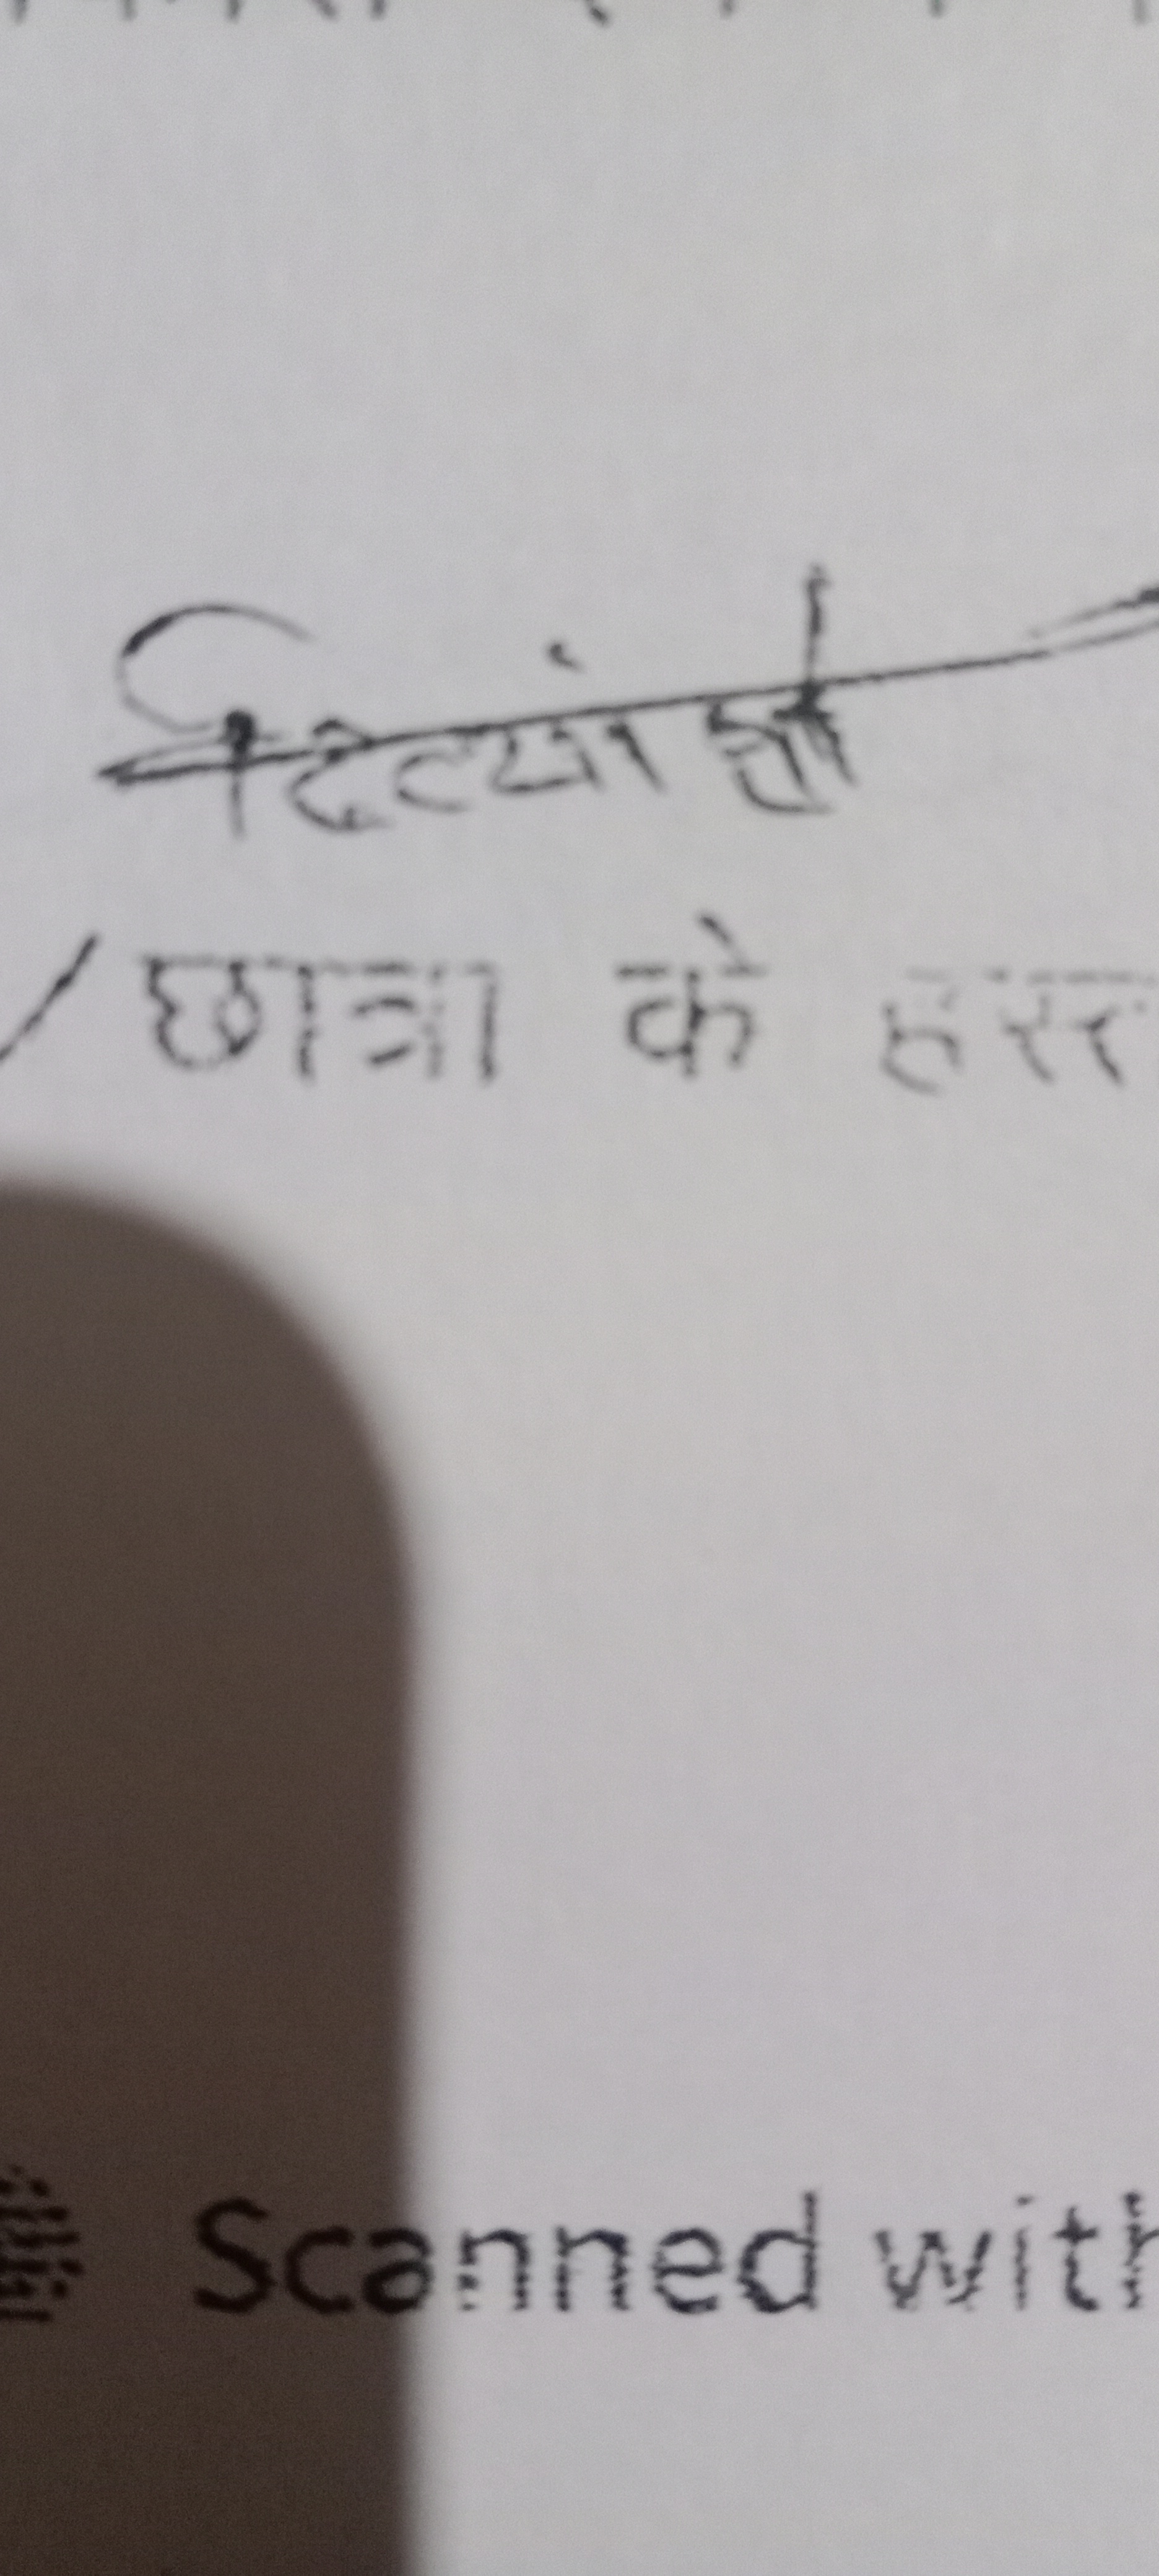 दिव्यांशी
/ छात्रा के हस्त
Scanned with